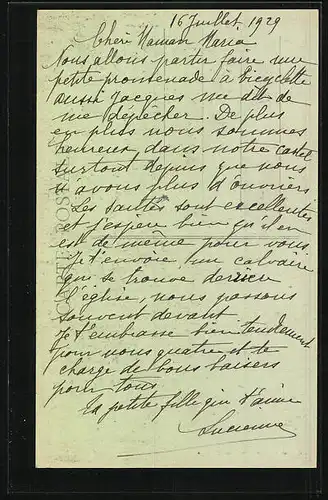 16 Juillet 1929
Chère Maman Maria
Nous allons partir faire une
petite promenade à bicyclette
aussi Jacques me dit de
me dépêcher. De plus
en plus nous sommes
heureux dans notre castel
surtout depuis que nous
n'avons plus d'ouvriers
Les santés sont excellentes
et j'espère bien qu'il en
est de même pour vous
Je t'envoie un calvaire
qui se trouve derrière
l'église, nous passons
souvent devant
Je t'embrasse bien tendrement
pour nous quatre et te
charge de bons baisers
pour tous
ta petite fille qui t'aime
Lucienne